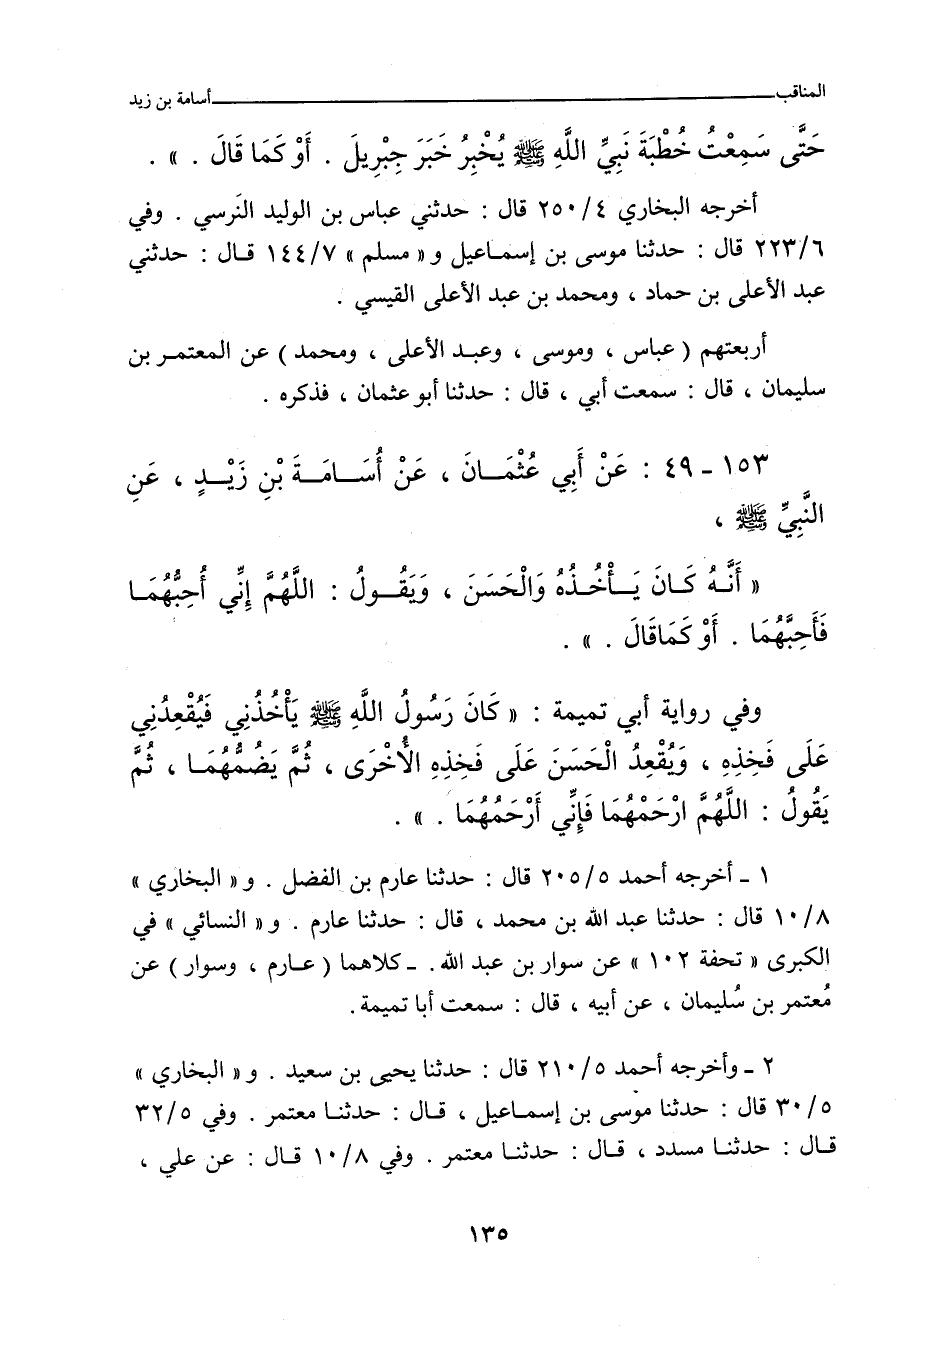 المناقب ــــــــــــــــــــ أسامة بن زيد
حَتَّى سَمِعْتُ خُطْبَةَ نَبِيِّ اللَّهِ ﷺ يُخْبِرُ خَبَرَ جِبْرِيلَ . أَوْ كَمَا قَالَ . » .
أخرجه البخاري ٢٥٠/٤ قال : حدثني عباس بن الوليد النَرسي . وفي
٢٢٣/٦ قال : حدثنا موسى بن إسماعيل و« مسلم » ١٤٤/٧ قال : حدثني
عبد الأعلى بن حماد ، ومحمد بن عبد الأعلى القيسي .
أربعتهم ( عباس ، وموسى ، وعبد الأعلى ، ومحمد ) عن المعتمر بن
سليمان ، قال : سمعت أبي ، قال : حدثنا أبو عثمان ، فذكره .
١٥٣ ـ ٤٩ : عَنْ أَبِي عُثْمَانَ ، عَنْ أُسَامَةَ بْنِ زَيْدٍ ، عَنِ
النَّبِيِّ ﷺ ،
« أَنَّهُ كَانَ يَأْخُذُهُ وَالْحَسَنَ ، وَيَقُولُ : اللَّهُمَّ إِنِّي أُحِبُّهُمَا
فَأَحِبَّهُمَا . أَوْ كَمَا قَالَ . » .
وفي رواية أبي تميمة : « كَانَ رَسُولُ اللَّهِ ﷺ يَأْخُذُنِي فَيُقْعِدُنِي
عَلَى فَخِذِهِ ، وَيُقْعِدُ الْحَسَنَ عَلَى فَخِذِهِ الأُخْرَى ، ثُمَّ يَضُمُّهُمَا ، ثُمَّ
يَقُولُ : اللَّهُمَّ ارْحَمْهُمَا فَإِنِّي أَرْحَمُهُمَا . » .
١ ـ أخرجه أحمد ٢٠٥/٥ قال : حدثنا عارم بن الفضل . و« البخاري »
١٠/٨ قال : حدثنا عبد الله بن محمد ، قال : حدثنا عارم . و« النسائي » في
الكبرى « تحفة ١٠٢ » عن سوار بن عبد الله . ـ كلاهما ( عارم ، وسوار ) عن
مُعتمر بن سُليمان ، عن أبيه ، قال : سمعت أبا تميمة .
٢ ـ وأخرجه أحمد ٢١٠/٥ قال : حدثنا يحيى بن سعيد . و« البخاري »
٣٠/٥ قال : حدثنا موسى بن إسماعيل ، قال : حدثنا معتمر . وفي ٣٢/٥
قال : حدثنا مسدد ، قال : حدثنا معتمر . وفي ١٠/٨ قال : عن علي ،
١٣٥